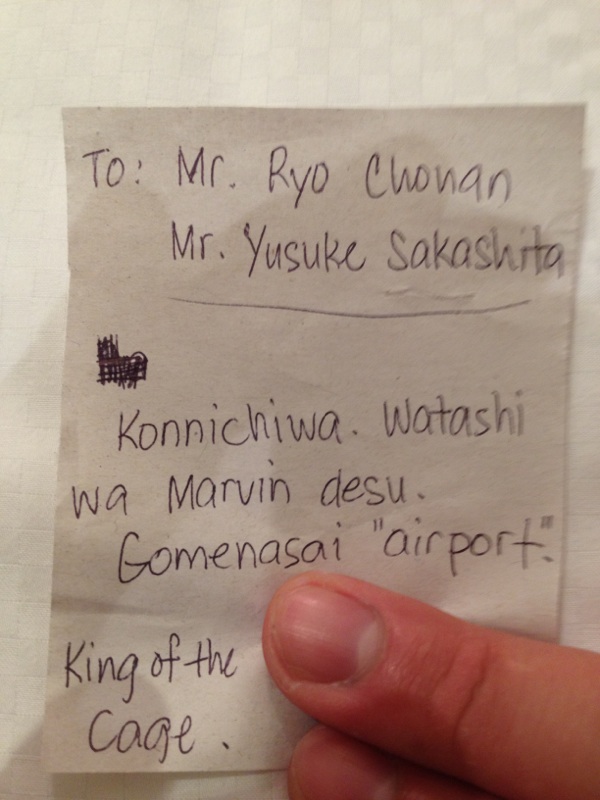 To: Mr. Ryo Chonan
Mr. Yusuke Sakashita
Konnichiwa. Watashi
wa Marvin desu.
Gomenasai "airport".
King of the
Cage.